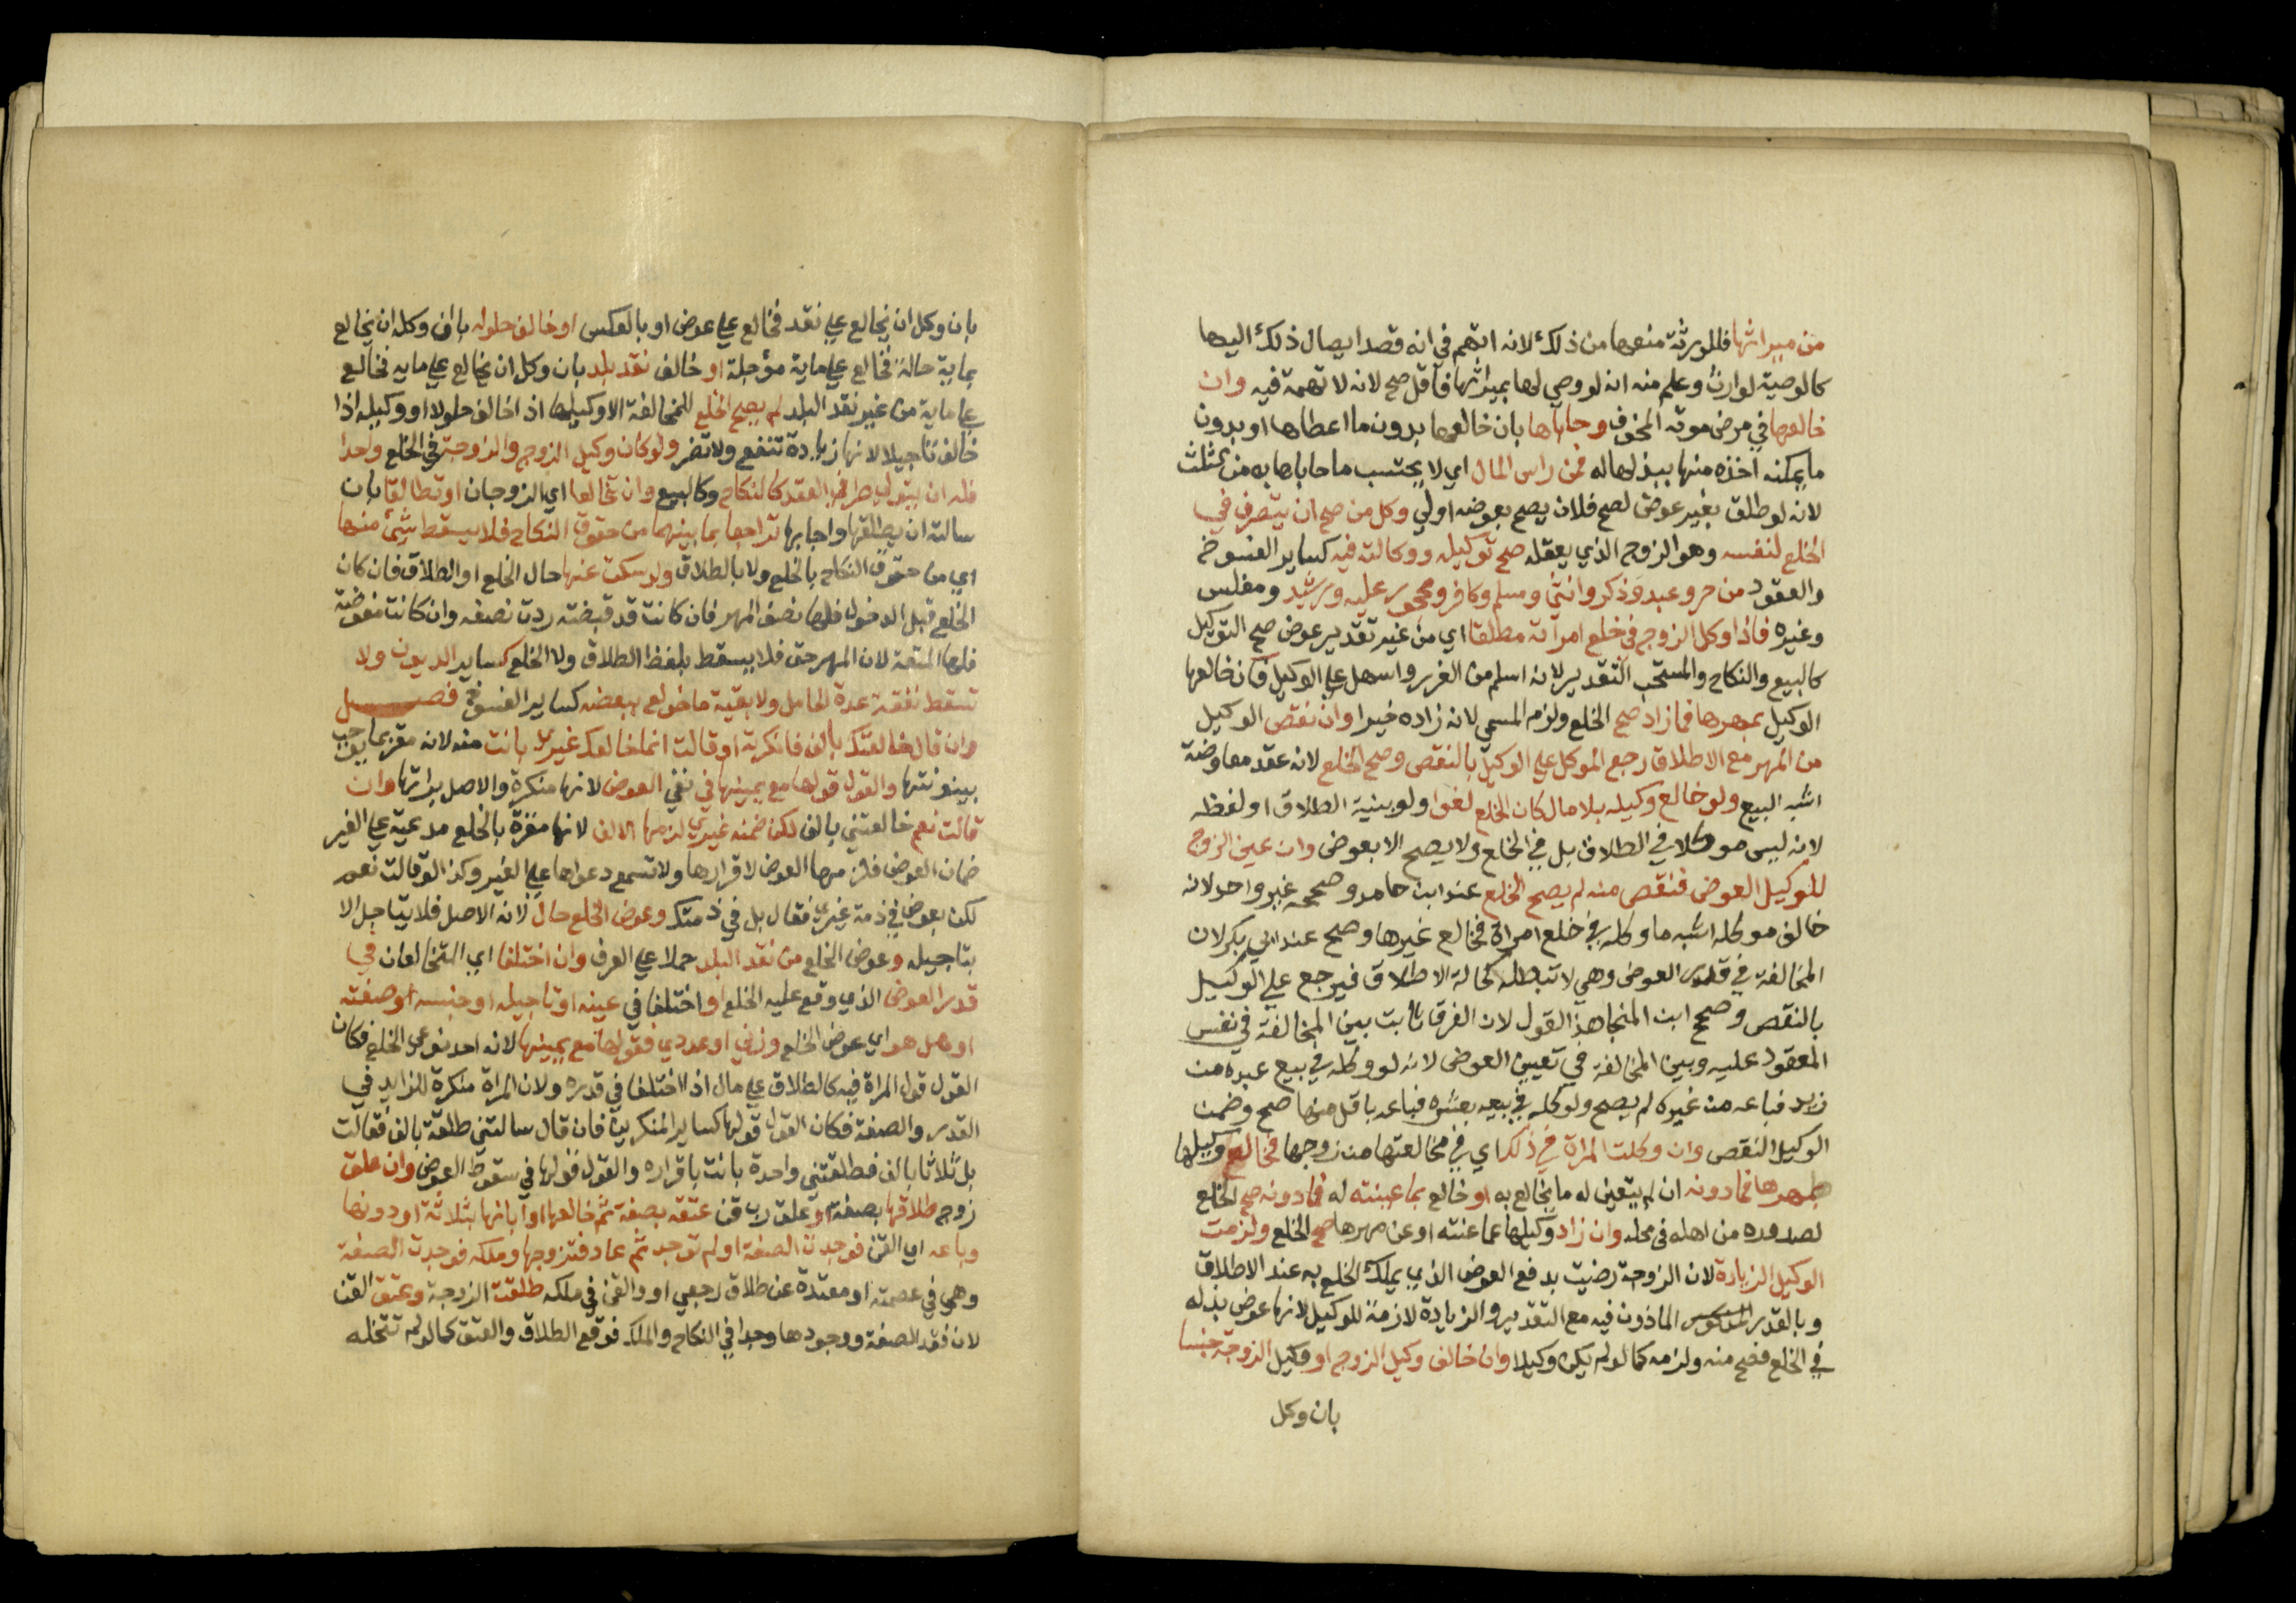 من ميراثها فللورثة منعها من ذلك لانه اتهم في انه قصد ايصال ذلك اليها
كالوصية لوارث وعلم منه انه لو وصي لها بميراثها فاقل صح لانه لا تهمة فيه وان
خالعها في مرض موته المخوف وحاباها بان خالعها بدون ما اعطاها او بدون
ما يمكنه اخذه منها ببذلها له فمن راس المال اي لا يحتسب ما حاباها به من ثلث
لانه لو طلق بغير عوض لصح فلان يصح بعوضه اولي وكل من صح ان يتصرف في
الخلع لنفسه وهو الزوج الذي يعقله صح توكيله ووكالته فيه كساير الفسوخ
والعقود من حر وعبد وذكر وانثي ومسلم وكافر ومحجور عليه ورشيد ومفلس
وغيره فاذا وكل الزوج في خلع امراته مطلقا اي من غير تقدير عوض صح التوكيل
كالبيع والنكاح والمستحب التقدير لانه اسلم من الغرر واسهل علي الوكيل فان خالعها
الوكيل بمهرها فما زاد صح الخلع ولزم المسمي لانه زاده خيرا وان نقص الوكيل
من المهر مع الاطلاق رجع الموكل علي الوكيل بالنقص وصح الخلع لانه عقد معاوضة
اشبه البيع ولو خالع وكيله بلا مال كان الخلع لغوا ولو بنية الطلاق او لفظه
لانه ليس موكلا في الطلاق بل في الخلع ولا يصح الا بعوض وان عين الزوج
للوكيل العوض فنقص منه لم يصح الخلع عند ابن حامد وصححه غير واحد لانه
خالف موكله اشبه ما وكله في خلع امراة فخالع غيرها وصح عند ابي بكر لان
المخالفة في قدر العوض وهي لا تبطله كحالة الاطلاق فيرجع علي الوكيل
بالنقص وصحح ابن المنجا هذا القول لان الفرق ثابت بين المخالفة في نفس
المعقود عليه وبين المخالفة في تعيين العوض لانه لو وكله في بيع عبده من
زيد فباعه من غيره لم يصح ولو وكله في بيعه بعشرة فباعه باقل منها صح وضمن
الوكيل النقص وان وكلت المراة في ذلك اي في مخالعتها من زوجها فخالع وكيلها
بمهرها فما دونه ان لم يتعين له ما يخالع به او خالع بما عينته له فما دونه صح الخلع
لصدوره من اهله في محله وان زاد وكيلها عما عينته او عن مهرها صح الخلع ولزمت
الوكيل الزيادة لان الزوجة رضيت بدفع العوض الذي يملك الخلع به عند الاطلاق
وبالقدر الماذون فيه مع التقدير والزيادة لازمة للوكيل لانها عوض بذله
في الخلع فصح منه ولزمه كما لو لم يكن وكيلا وان خالف وكيل الزوج او وكيل الزوجة جنسا
بان وكل
بان وكل ان يخالع علي نقد فخالع علي عوض او بالعكس او خالف حلولا بان وكله ان يخالع
بماية حالة فخالع علي ماية مؤجلة او خالف نقد بلد بان وكل ان يخالع علي ماية فخالع
علي ماية من غير نقد البلد لم يصح الخلع للمخالفة الا وكيلها اذا خالف حلولا او وكيله اذا
خالف تاجيلا لانها زيادة تنفع ولا تضر ولو كان وكيل الزوج والزوجة في الخلع واحدا
فله ان يتولي طرفي العقد كالنكاح وكالبيع وان تخالعا اي الزوجان او تطالقا بان
سالته ان يطلقها واجابها تراجعا بما بينهما من حقوق النكاح فلا يسقط شئ منها
اي من حقوق النكاح بالخلع ولا بالطلاق ولو سكت عنها حال الخلع او الطلاق فان كان
الخلع قبل الدخول فلها نصف المهر فان كانت قد قبضته ردت نصفه وان كانت مفوضة
فلها المتعة لان المهر حق فلا يسقط بلفظ الطلاق ولا الخلع كساير الديون ولا
تسقط نفقة عدة الحامل ولا بقية ما خولع ببعضه كساير الفسوخ فصل
وان قال خالعتك بالف فانكرته او قالت انما خالعك غيري بانت منه لانه مقر بما يوجب
بينونتها والقول قولها مع يمينها في نفي العوض لانها منكرة والاصل براتها وان
قالت نعم خالعتني بالف لكن ضمنه غيري لزمها الالف لانها مقرة بالخلع مدعية علي الغير
ضمان العوض فلزمها العوض لاقرارها ولا تسمع دعواها علي الغير وكذا لو قالت نعم
لكن بعوض في ذمة غيري فقال بل في ذمتك وعوض الخلع حال لانه الاصل فلا يتاجل الا
بتاجيله وعوض الخلع من نقد البلد حملا علي العرف وان اختلفا اي المتخالعان في
قدر العوض الذي وقع عليه الخلع او اختلفا في عينه او تاجيله او جنسه او صفته
او هل هو اي عوض الخلع وزني او عددي فقولها مع يمينها لانه احد نوعي الخلع فكان
القول قول المراة فيه كالطلاق علي مال اذا اختلفا في قدره ولان المراة منكرة للزايد في
القدر والصفة فكان القول قولها كساير المنكرين فان قال سالتني طلقة بالف فقالت
بل ثلاثا بالف فطلقتني واحدة بانت باقراره والقول قولها في سقوط العوض وان علق
زوج طلاقها بصفة او علق رب قن عتقه بصفة ثم خالعها او ابانها بثلاثة او دونها
وباعه اي القن فوجدت الصفة او لم توجد ثم عاد فتزوجها وملكه فوجدت الصفة
وهي في عصمته او معتدة عن طلاق رجعي او والقن في ملكه طلقت الزوجة وعتق القن
لان فقد الصفة ووجودها وجدا في النكاح والملك فوقع الطلاق والعتق كما لو لم تتخلله